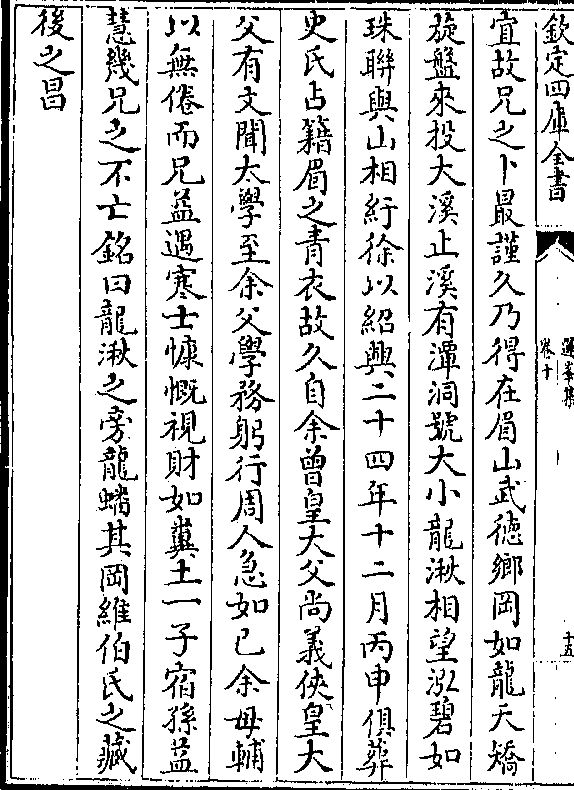 欽定四庫全書
蓮峯集
卷十
十五
宜故兄之卜最謹久乃得在眉山武徳鄉岡如龍天矯
旋盤來投大溪止溪有潭洞號大小龍湫相望泓碧如
珠聯與山相紆徐以紹興二十四年十二月丙申俱葬
史氏占籍眉之青衣故久自余曾皇大父尚義俠皇大
父有文聞太學至余父學務躬行周人急如已余母輔
以無倦而兄益遇寒士慷慨視財如糞土一子宿孫益
慧幾兄之不亡銘曰龍湫之旁龍蟠其岡維伯氏之藏
後之昌